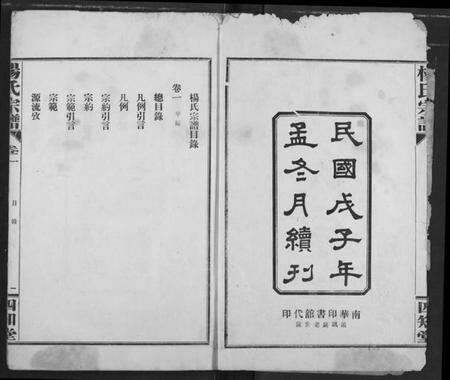 楊氏宗譜
民國戊子年
孟冬月續刊
南華印書舘代印
楊氏宗譜目錄
卷一
總目錄
凡例引言
凡例
宗約引言
宗約
宗範引言
宗範
源流攷
楊氏宗譜
卷一
目錄
二
四知堂